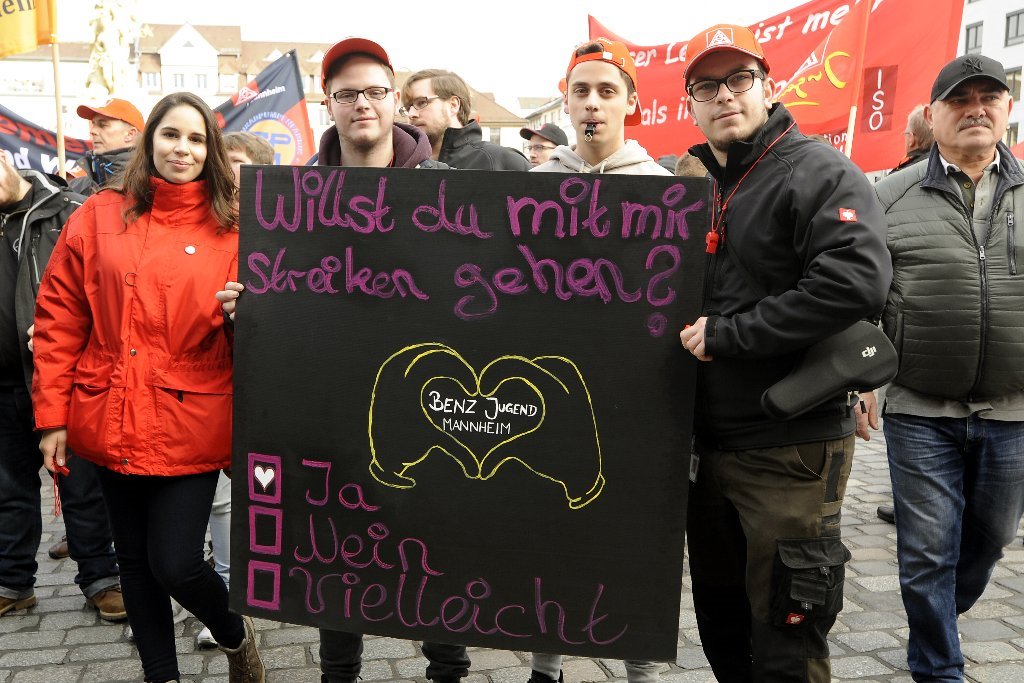 Willst du mit mir
streiken gehen?
BENZ JUGEND
MANNHEIM
Ja
Nein
Vielleicht
ist me
als
ISO
dji